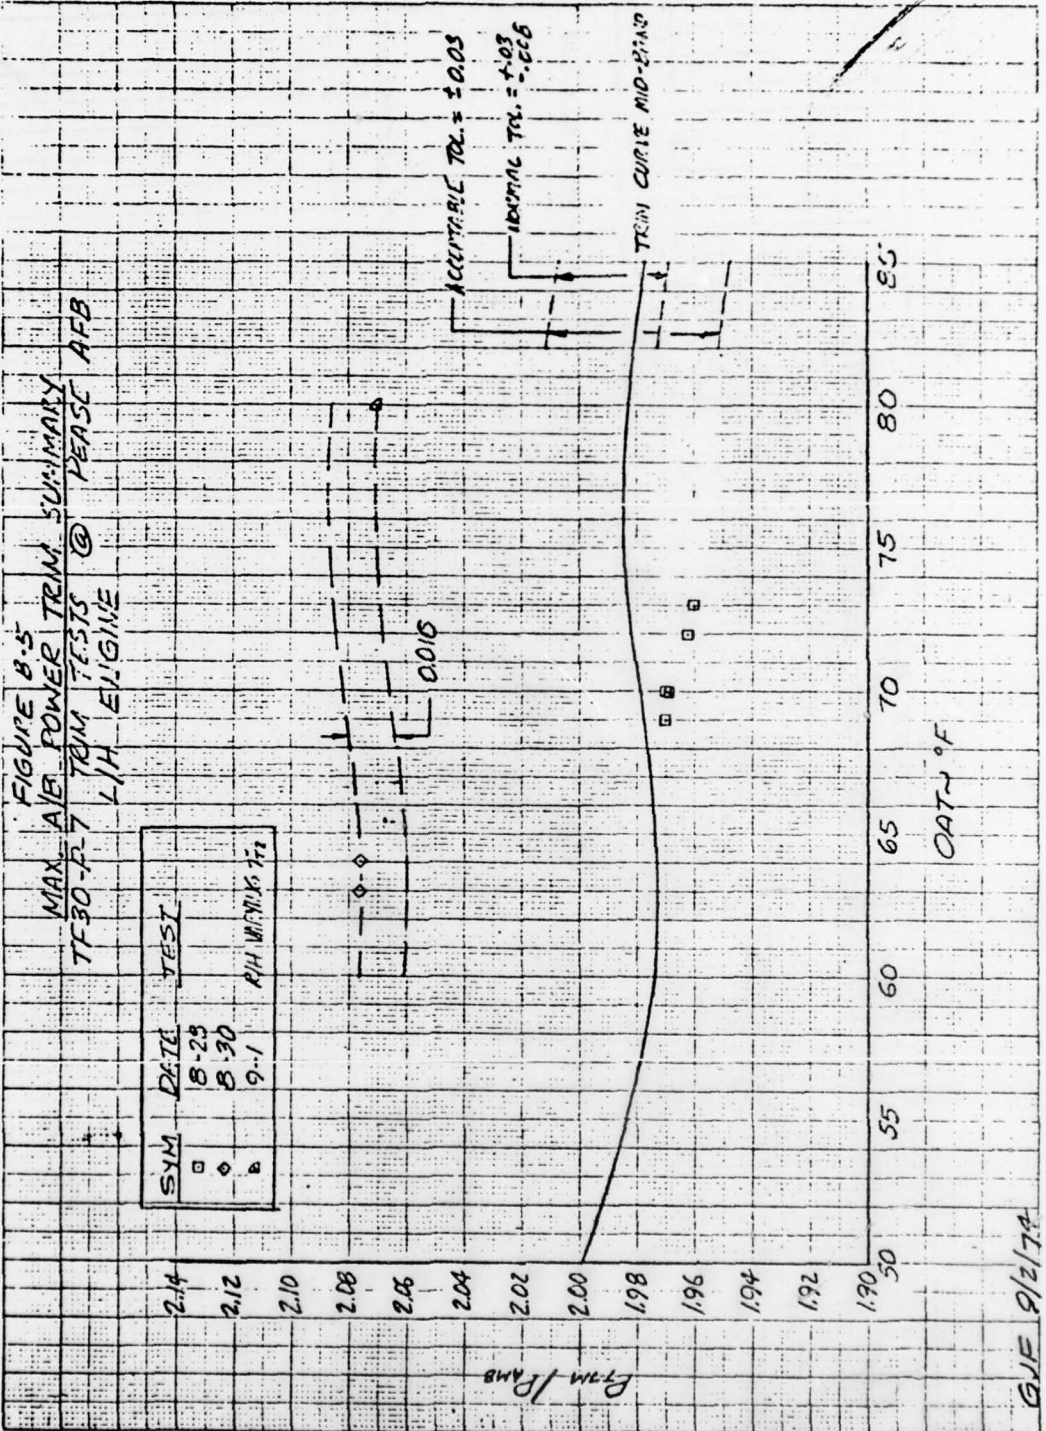 FIGURE B-5
MAX. A/B POWER TRIM SUMMARY
TF30-P-7 TRIM TESTS @ PEASE AFB
L/H ENGINE
SYM DATE TEST
8-29
8-30
9-1 R/H
ACCEPTABLE TOL. = ±0.03
NORMAL TOL. = +.03
-.006
TRIM CURVE MID-BAND
0.016
2.14
2.12
2.10
2.08
2.06
2.04
2.02
2.00
1.98
1.96
1.94
1.92
1.90
50 55 60 65 70 75 80 85
OAT~°F
PT7M/PAMB
GJF 9/2/74